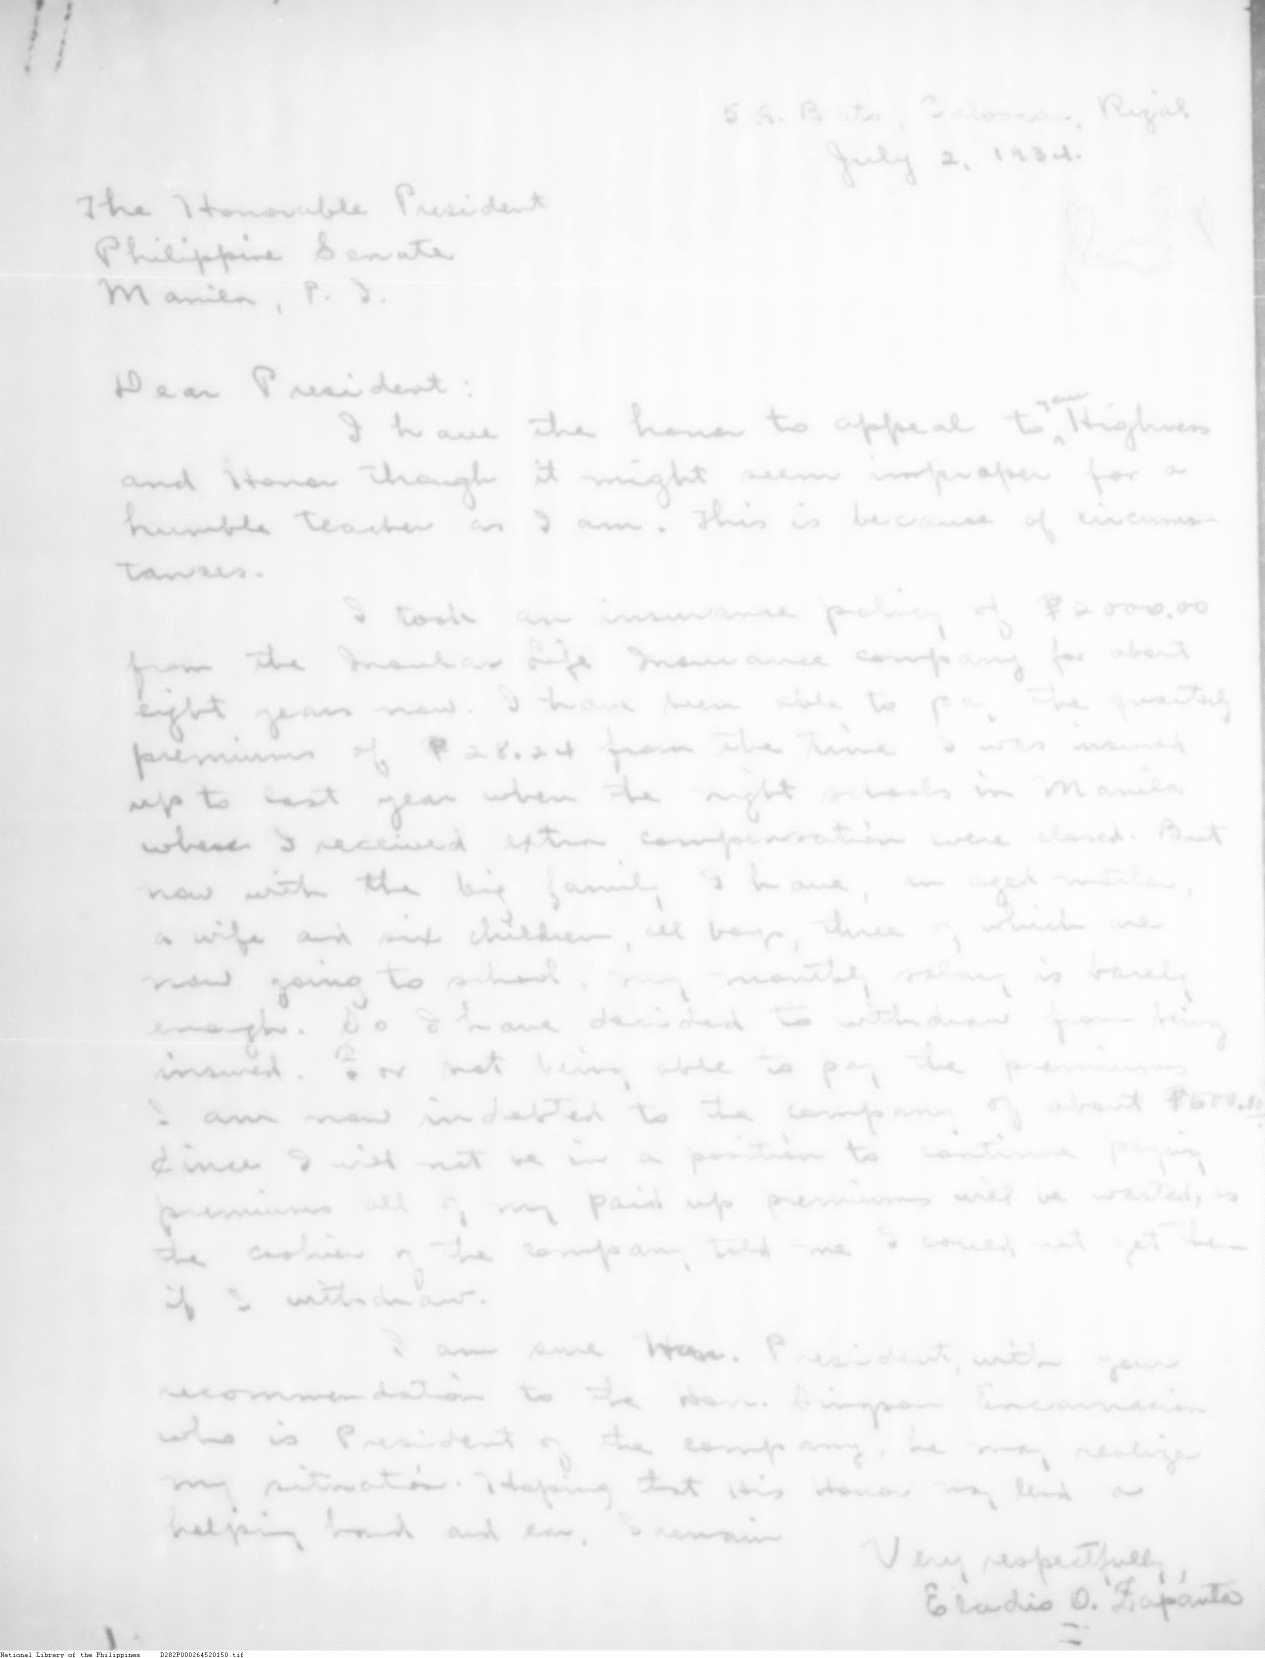 July 2, 1934.
The Honorable President
Philippine Senate
Manila, P. I.
Dear President:
I have the honor to appeal to your Highness
and Honor though it might seem improper for a
humble teacher as I am. This is because of circums-
tances.
I took an insurance policy of ₱2000.00
from the Insular Life Insurance company for about
eight years now. I have been able to pay the quarterly
premiums of ₱28.24 from the time I was insured
up to last year when the night schools in Manila
where I received extra compensation were closed. But
now with the big family I have, an aged mother,
a wife and six children, all boys, three of which are
now going to school, my monthly salary is barely
enough. So I have decided to withdraw from being
insured. For not being able to pay the premiums
I am now indebted to the company of about
Since I will not be in a position to continue paying
premiums all of my paid up premiums will be wasted, as
the cashier of the company told me I could not get them
if I withdraw.
I am sure Hon. President, with your
recommendation to the Hon. Encarnacion
who is President of the company, he may realize
my situation. Hoping that His Honor may lend a
helping hand and ear, I remain
Very respectfully,
Eladio O. Zapanta
National Library of the Philippines D282P000264520150.tif